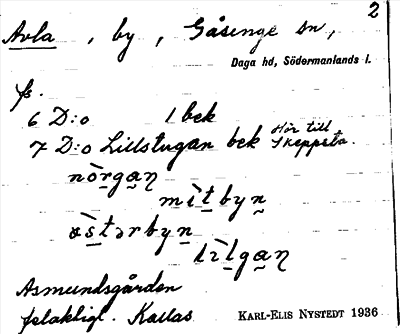 2
Avla, by, Gåsinge sn,
Daga hd, Södermanlands l.
fs.
6 D:o 1 bek
7 D:o Lillstugan bek Hör till
Skeppsta.
nòrgan
mìtbyn
östərbyn
lìlgan
Asmundsgården
felaktigt. Kallas
KARL-ELIS NYSTEDT 1936